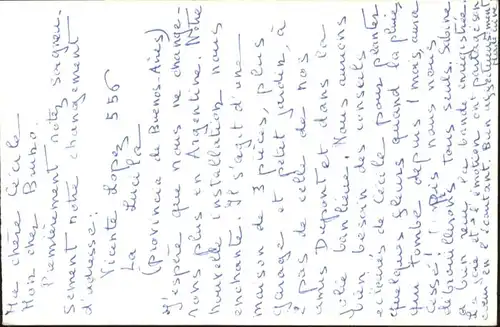 Ma chère Cécile
Mon cher Bruno.
Premièrement notez soigneu-
sement notre changement
d'adresse:
Vicente Lopez 550
La Lucila
(Provincia de Buenos-Aires)
J'espère que nous ne change-
rons plus en Argentine. Notre
nouvelle installation nous
enchante. Il s'agit d'une
maison de 3 pièces, plus
garage et petit jardin, à
2 pas de celle de nos
amis Dupont et dans la
même banlieue. Nous aurions
bien besoin des conseils
éclairés de Cécile pour planter
quelques fleurs quand la pluie
qui tombe depuis 1 mois aura
cessé! Puis nous nous
débrouillerons tous seuls. Sabine
a bien reçu la bande enregistrée.
en l'écoutant. Bien affectueusement